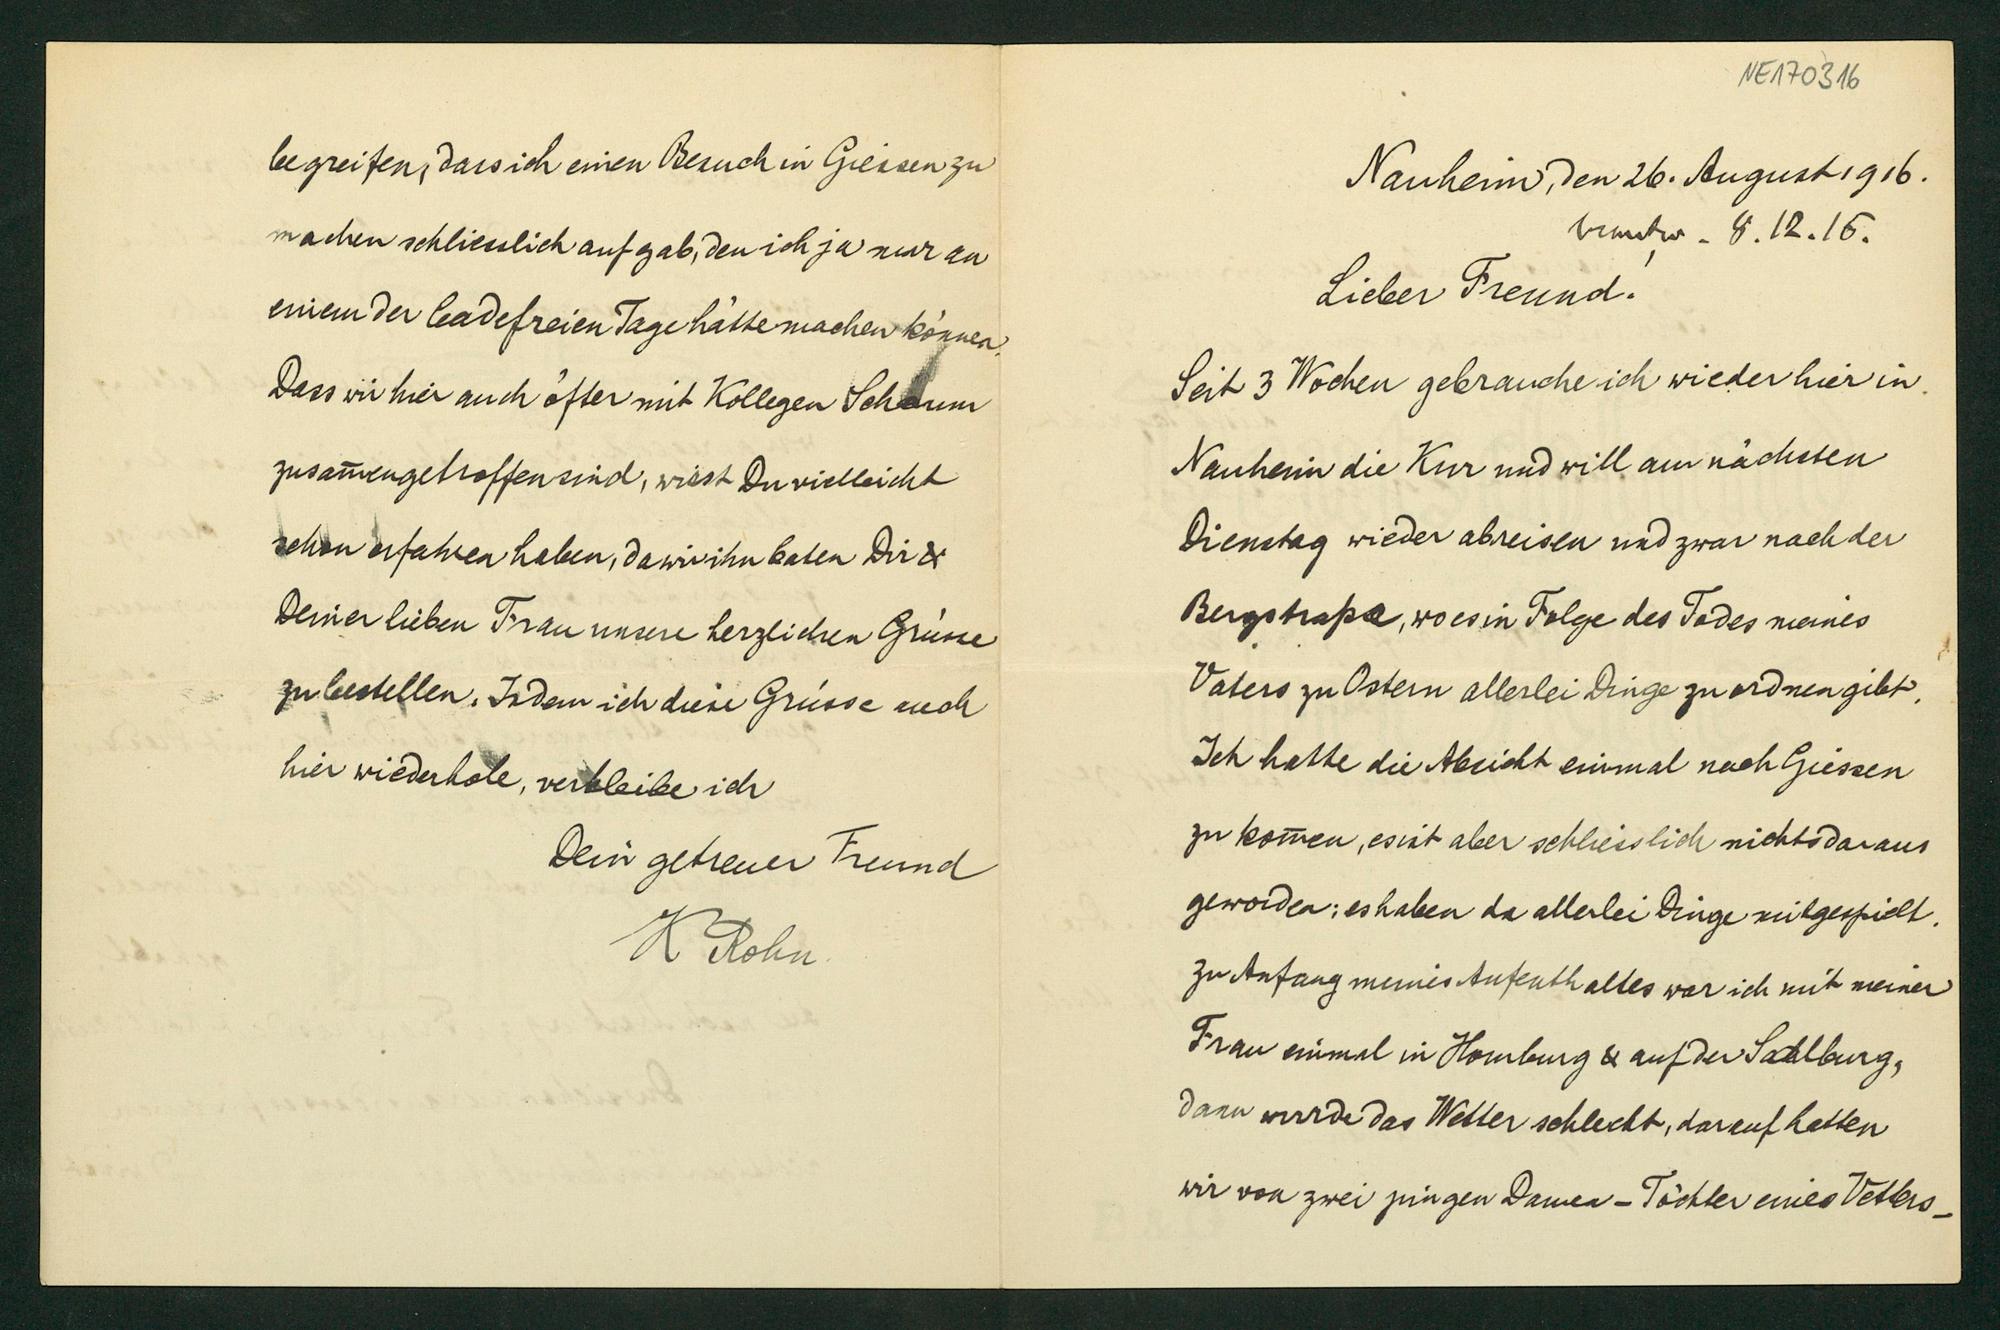 NE170316
Nauheim, den 26. August 1916.
beantw. 8.12.16.
Lieber Freund!
Seit 3 Wochen gebrauche ich wieder hier in
Nauheim die Kur und will am nächsten
Dienstag wieder abreisen und zwar nach der
Bergstraße, wo es in Folge des Todes meines
Vaters zu Ostern allerlei Dinge zu ordnen gibt.
Ich hatte die Absicht einmal nach Giessen
zu kom̅en, es ist aber schliesslich nichts daraus
geworden; es haben da allerlei Dinge mitgespielt.
Zu Anfang meines Aufenthaltes war ich mit meiner
Frau einmal in Homburg & auf der Saalburg,
dann wurde das Wetter schlecht, darauf hatten
wir von zwei jungen Damen – Töchter eines Vetters –
begreifen, dass ich einen Besuch in Giessen zu
machen schliesslich aufgab, den ich ja nur an
einem der badefreien Tage hätte machen können.
Dass wir hier auch öfter mit Kollegen Schaum
zusam̅engetroffen sind, wirst Du vielleicht
schon erfahren haben, da wir ihn baten Dir &
Deiner lieben Frau unsere herzlichen Grüsse
zu bestellen. Indem ich diese Grüsse auch
hier wiederhole, verbleibe ich
Dein getreuer Freund
K Rohn.